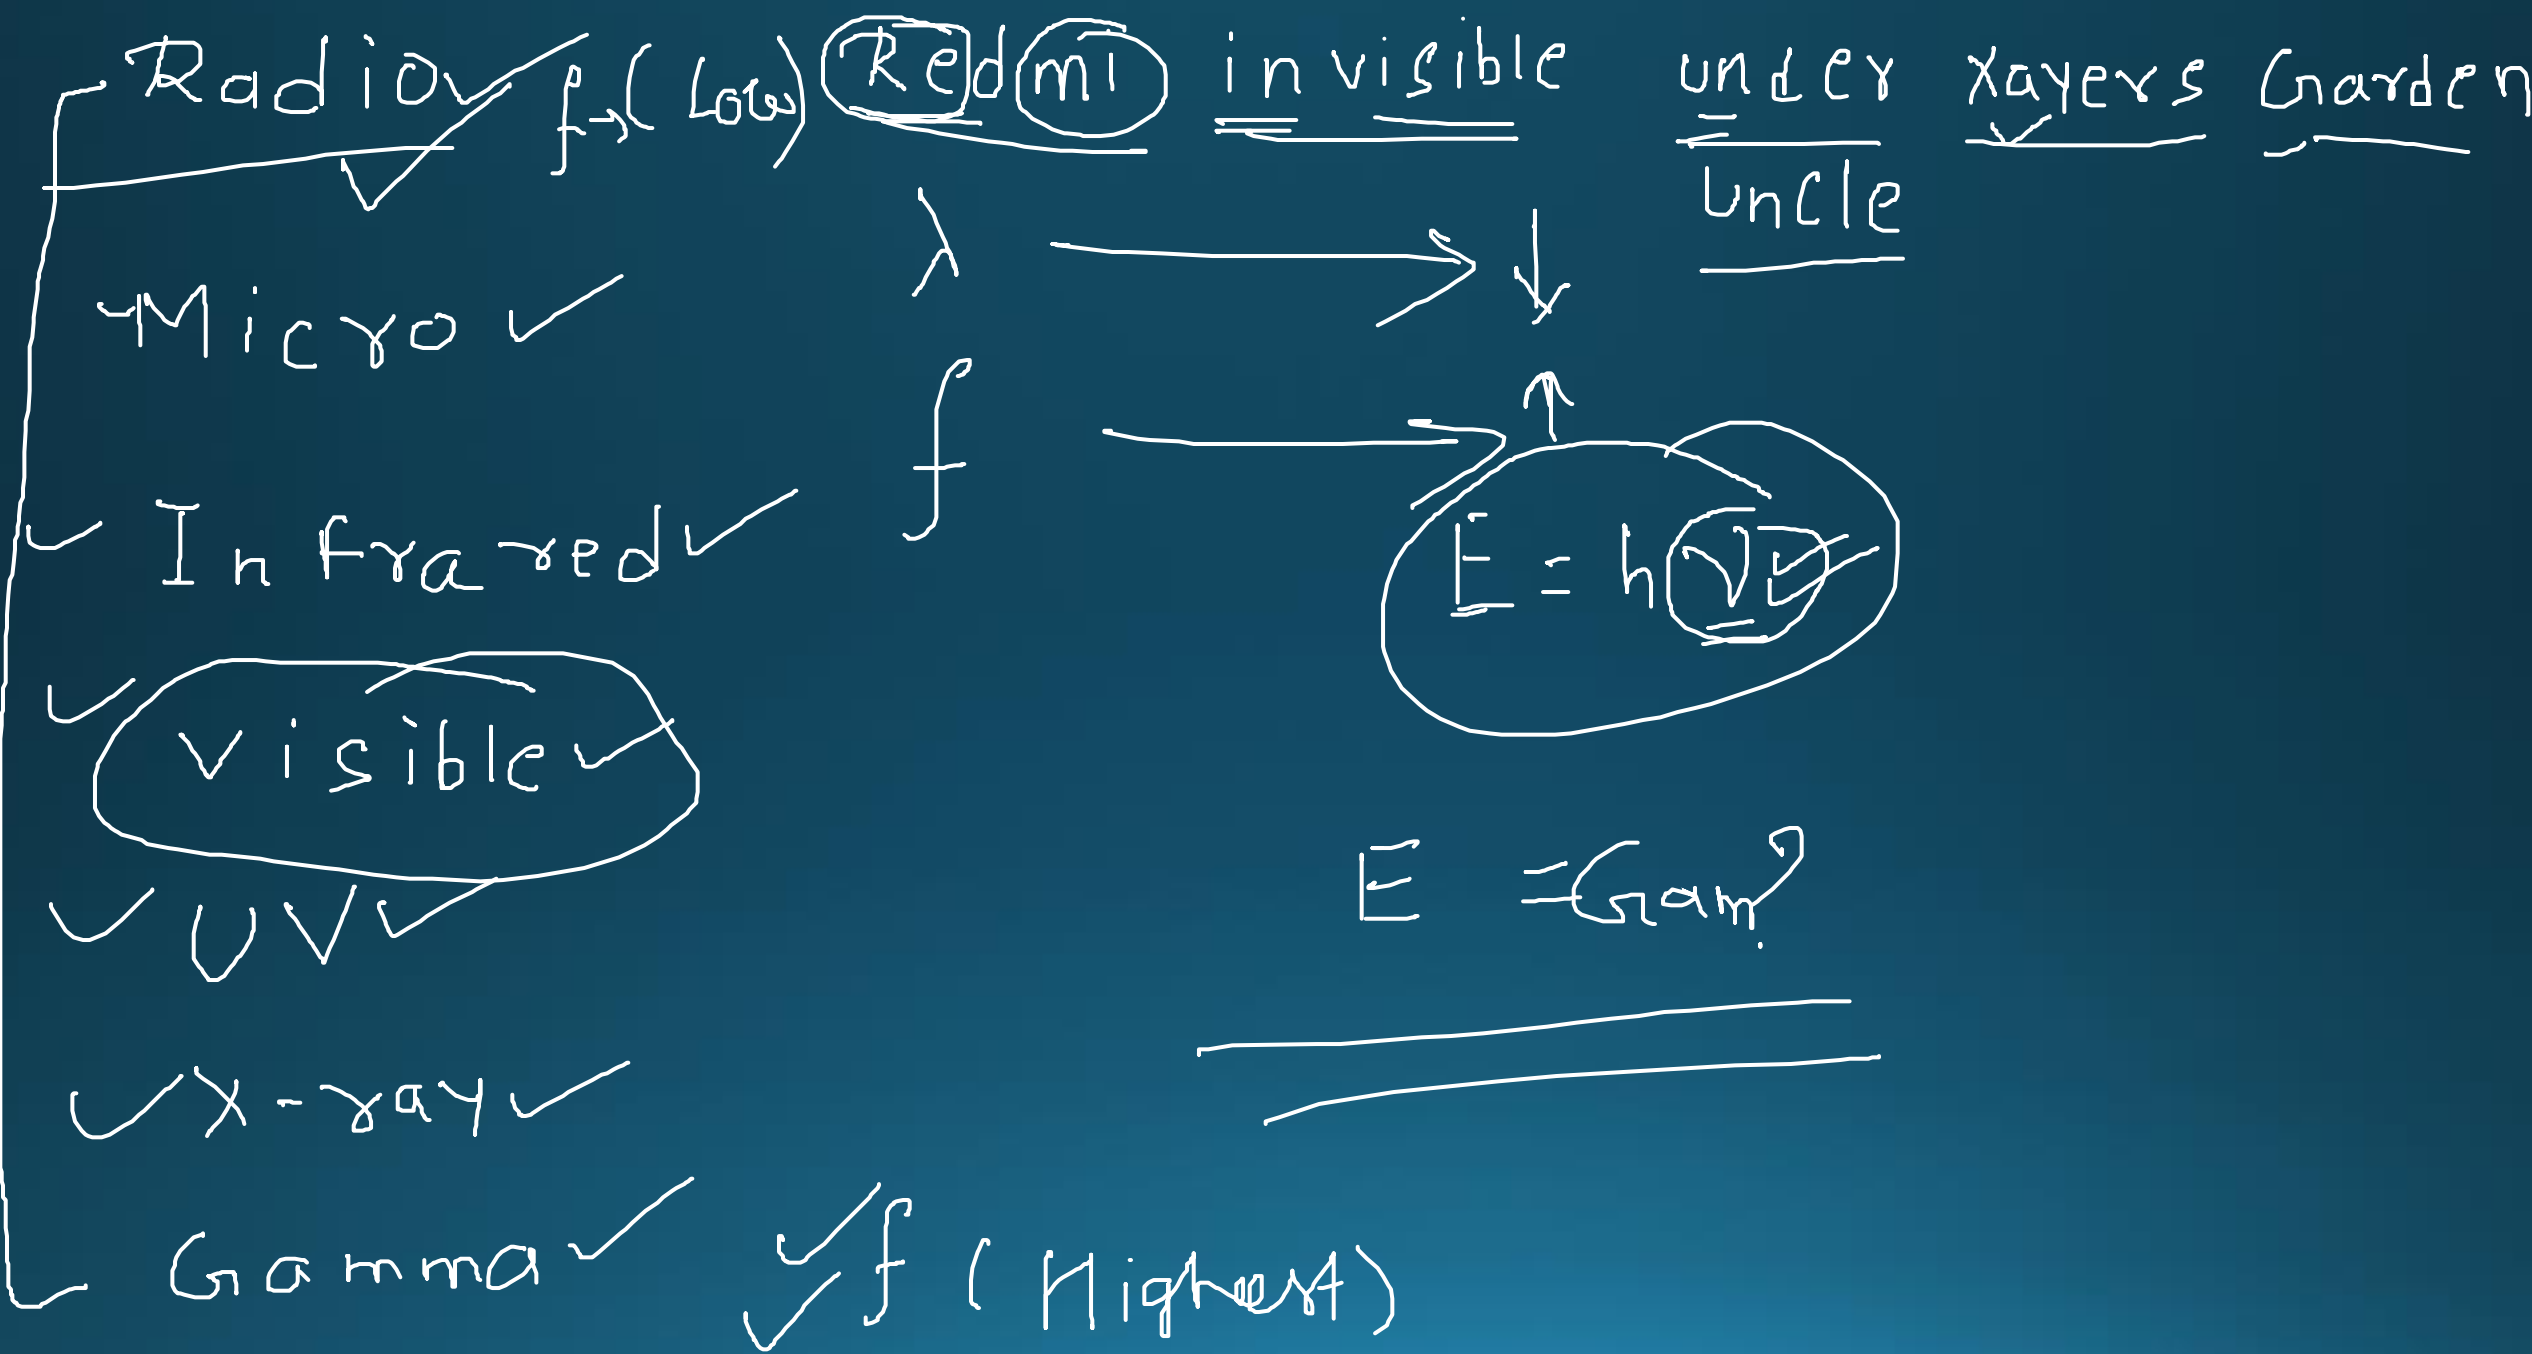 Radio f→(Low) Redmi invisible under Xayers Garden
uncle
λ
Micro
f
Infrared
E = hν
Visible
E = Gam
UV
X-ray
Gamma f (Highest)